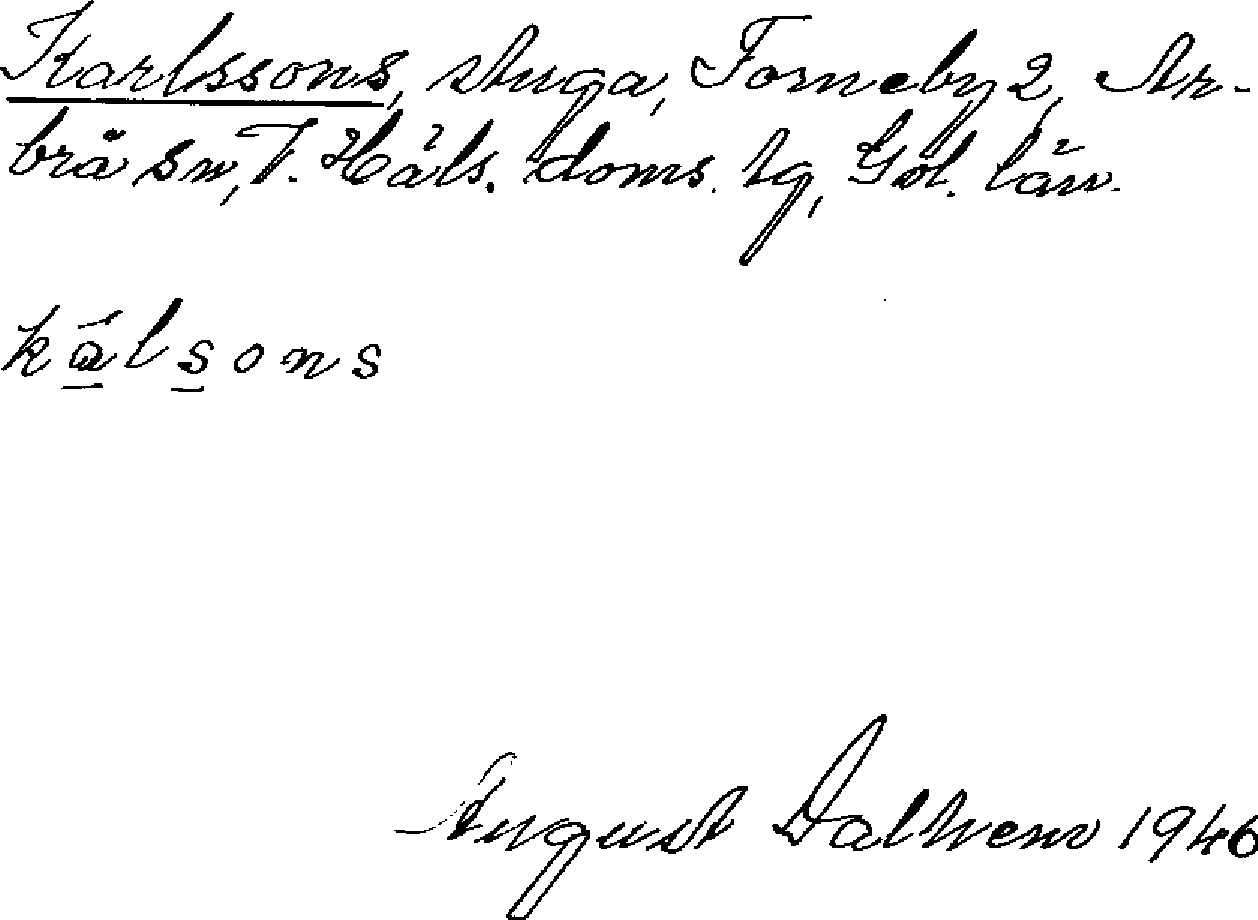 Karlssons, stuga, Forneby 2, Ar-
brå sn, V. Häls. doms. tg, Gbl. län.
kálsons
August Dalhem 1946